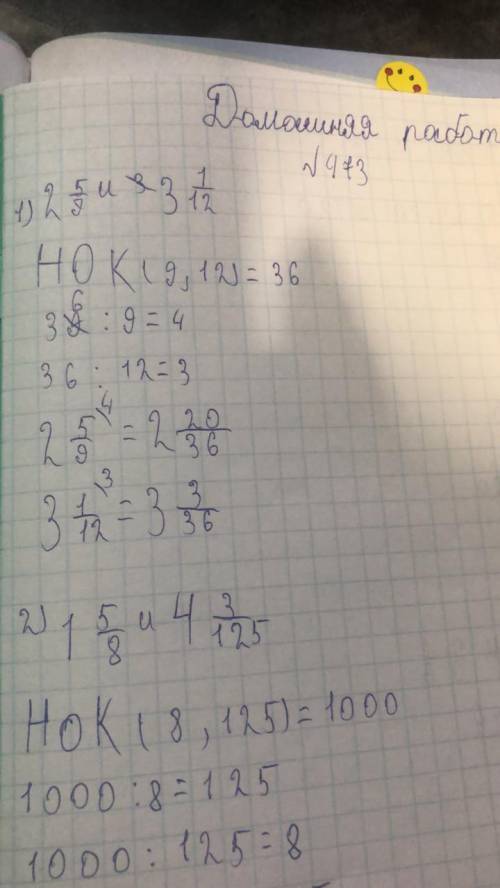 Домашняя работ
№473
1) 2 5/9 и 3 1/12
НОК (9, 12) = 36
36 : 9 = 4
36 : 12 = 3
2 5/9 \4 = 2 20/36
3 1/12 \3 = 3 3/36
2) 1 5/8 и 4 3/125
НОК (8, 125) = 1000
1000 : 8 = 125
1000 : 125 = 8